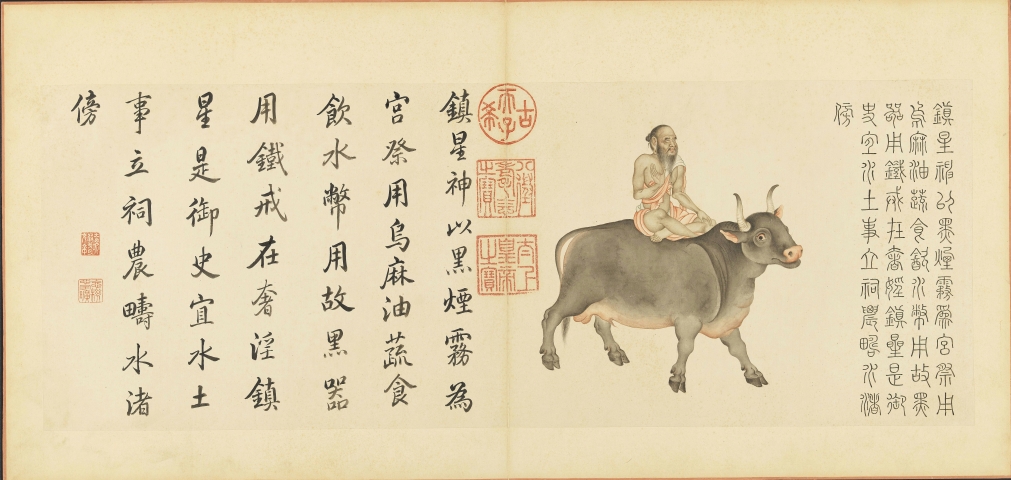 鎮星神以黑煙霧為宮祭用
烏麻油蔬食飲水幣用故黑
器用鐵戒在奢婬鎮星是御
史宜水土事立祠農疇水渚
傍
古希天子
八徵耄念之寶
太上皇帝之寶
鎮星神以黑煙霧為
宮祭用烏麻油蔬食
飲水幣用故黑器
用鐵戒在奢淫鎮
星是御史宜水土
事立祠農疇水渚
傍